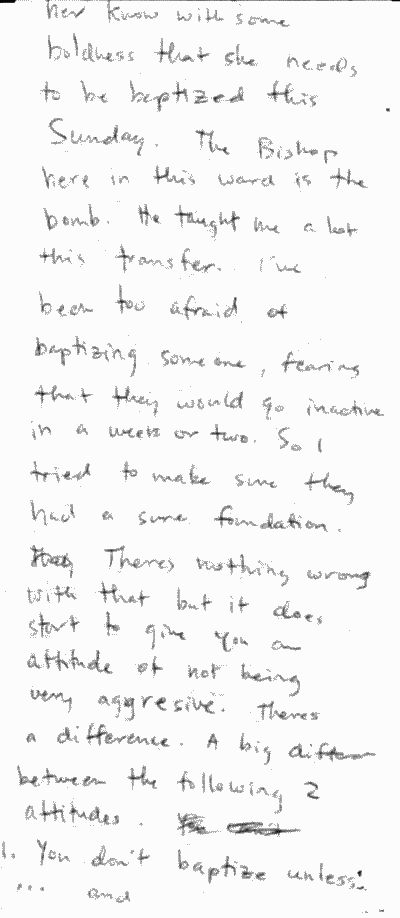 her know with some
boldness that she needs
to be baptized this
Sunday. The Bishop
here in this ward is the
bomb. He taught me a lot
this transfer. I've
been too afraid of
baptizing someone, fearing
that they would go inactive
in a week or two. So I
tried to make sure they
had a sure foundation.
Theres nothing wrong
with that but it does
start to give you an
attitude of not being
very aggresive. Theres
a difference. A big differen
between the following 2
attitudes.
1. You don't baptize unless:
... and